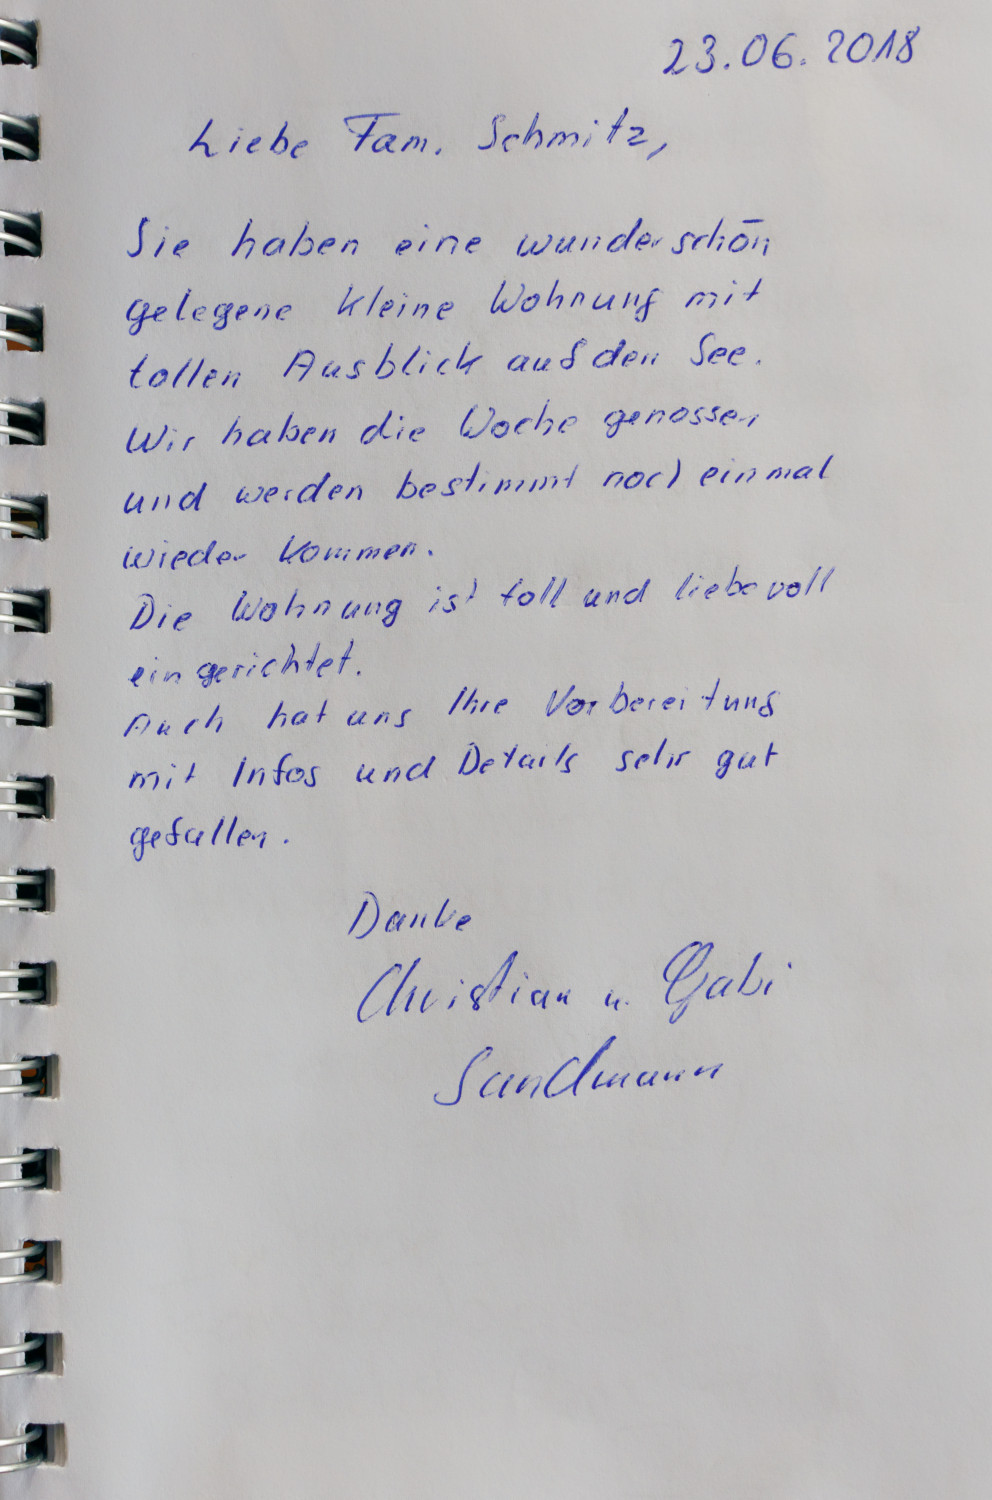 23.06.2018
Liebe Fam. Schmitz,
Sie haben eine wunderschön
gelegene kleine Wohnung mit
tollen Ausblick auf den See.
Wir haben die Woche genossen
und werden bestimmt noch einmal
wieder kommen.
Die Wohnung ist toll und liebevoll
eingerichtet.
Auch hat uns Ihre Vorbereitung
mit Infos und Details sehr gut
gefallen.
Danke
Christian u. Gabi
Sandmann